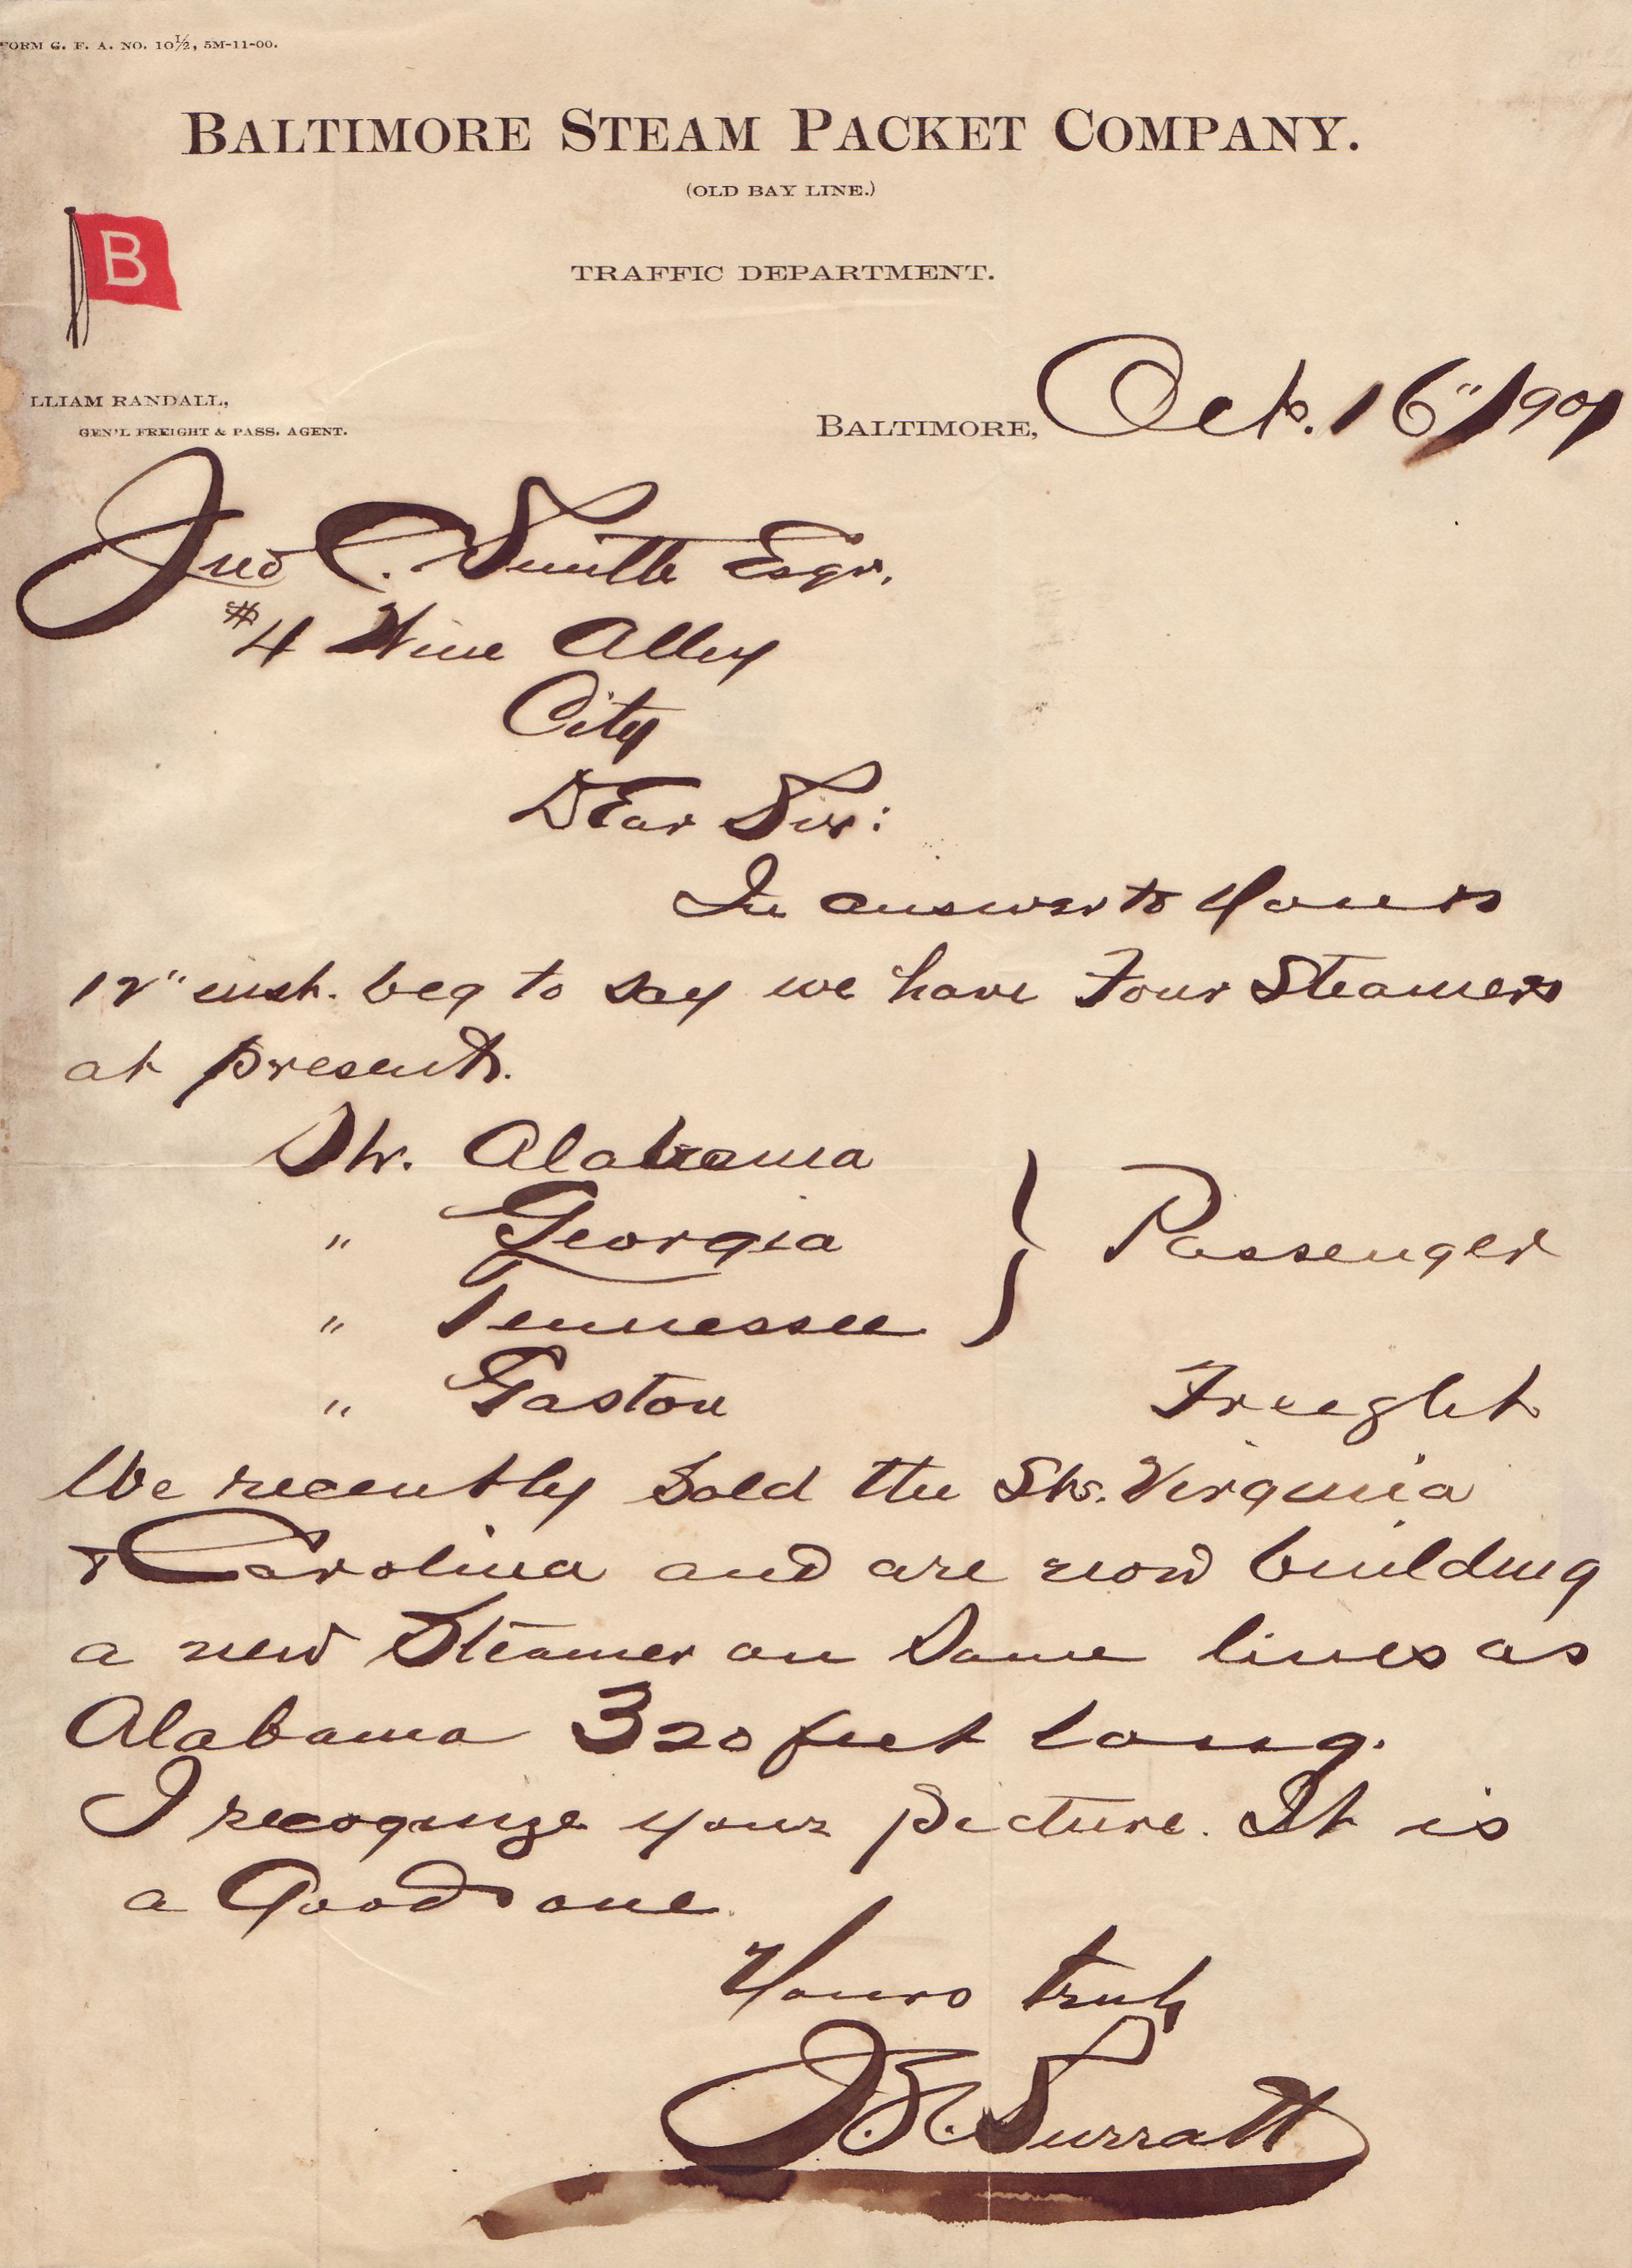 FORM G. F. A. NO. 10½, 5M-11-00.
BALTIMORE STEAM PACKET COMPANY.
(OLD BAY LINE.)
B
TRAFFIC DEPARTMENT.
LLIAM RANDALL,
GEN'L FREIGHT & PASS. AGENT.
BALTIMORE, Oct. 16" 1901
Jno C. Smith Esqr.
#4 Wine Alley
City
Dear Sir:
In answer to Yours
12" inst. beg to say we have Four Steamers
at present.
Str. Alabama
" Georgia } Passenger
" Tennessee
" Gaston Freight
We recently sold the Strs. Virginia
& Carolina and are now building
a new Steamer on Same lines as
Alabama 320 feet long.
I recognize your picture. It is
a Good one.
Yours truly
J. H. Surratt